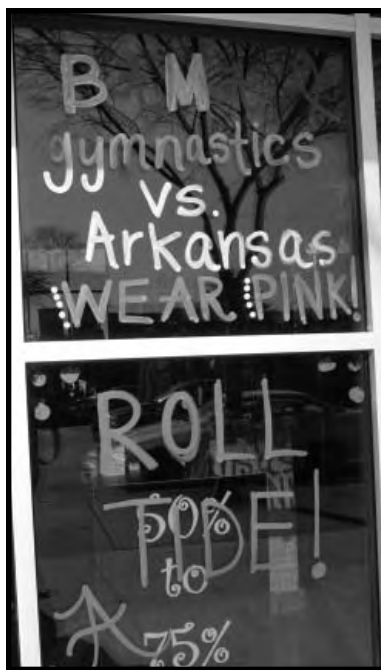 B M X
gymnastics
vs.
Arkansas
WEAR PINK!
ROLL
TIDE!
50%
to
A 75%